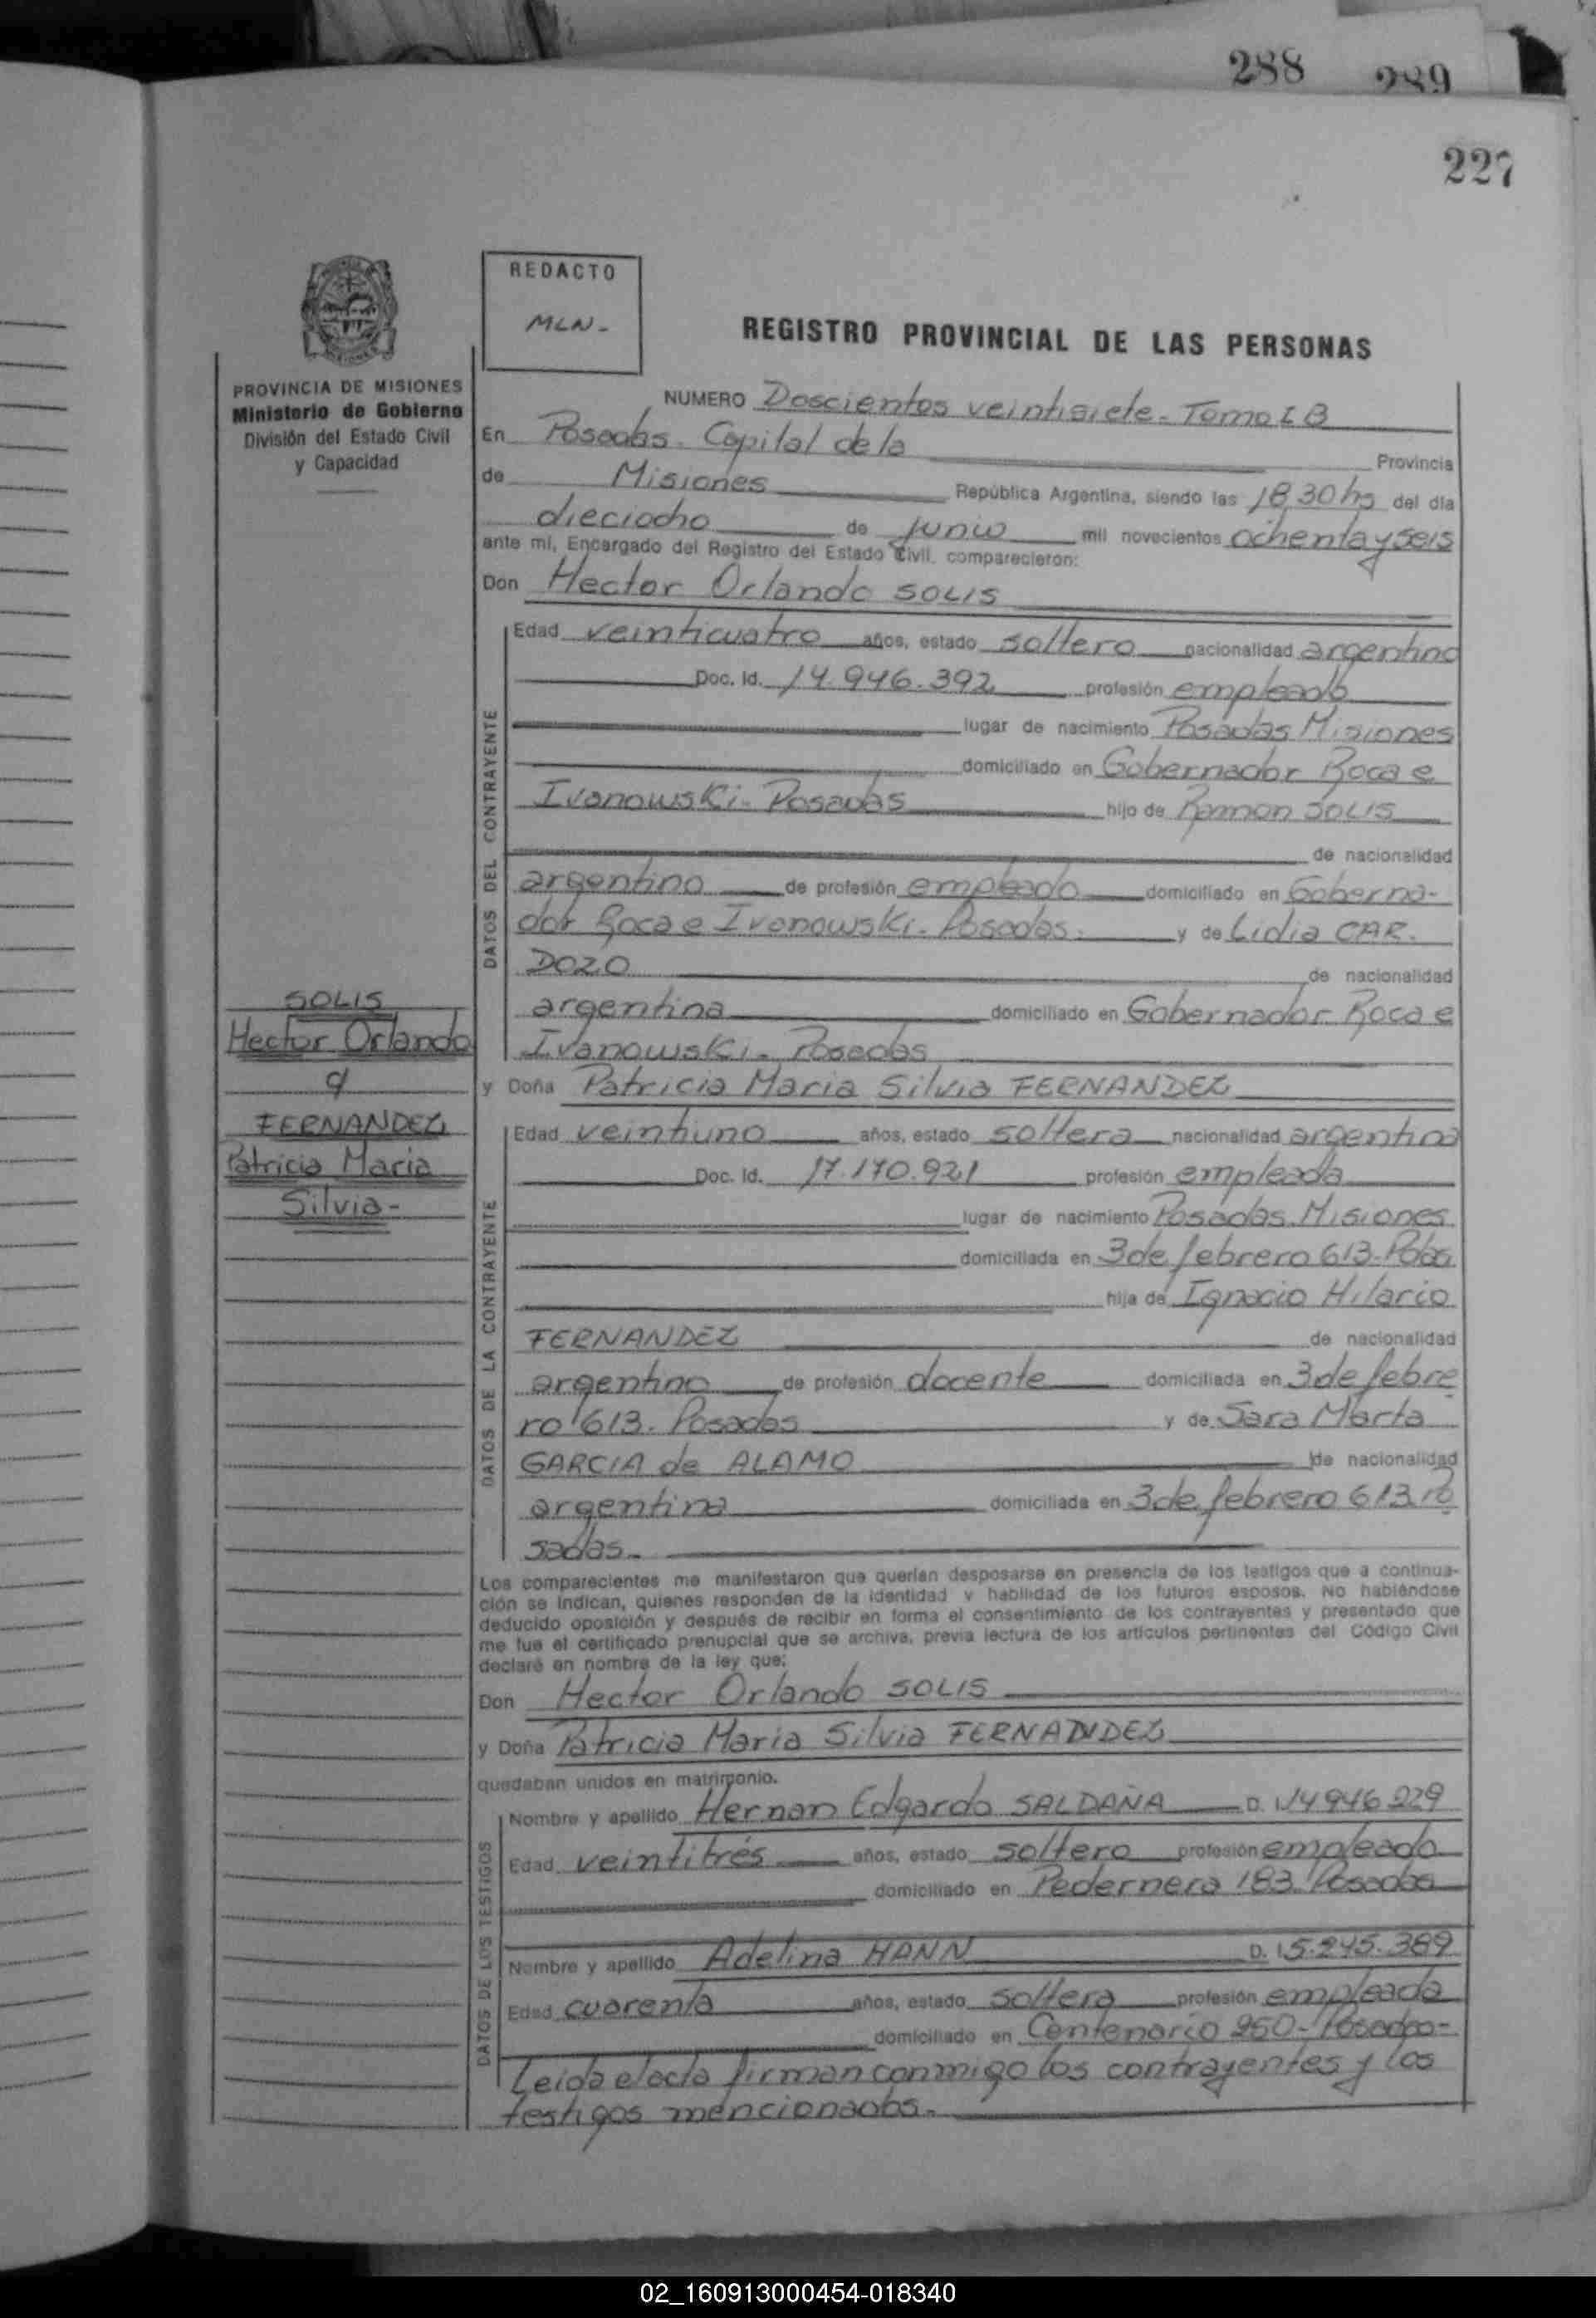 288 289
227
REDACTO
MLN-
REGISTRO PROVINCIAL DE LAS PERSONAS
PROVINCIA DE MISIONES
Ministerio de Gobierno
División del Estado Civil
y Capacidad
NUMERO Doscientos veintisiete - Tomo I B
En Posadas. Capital de la Provincia
de Misiones República Argentina, siendo las 18,30 hs del día
dieciocho de junio mil novecientos ochenta y seis
ante mí, Encargado del Registro del Estado Civil, comparecieron:
Don Hector Orlando SOLIS
DATOS DEL CONTRAYENTE
Edad veinticuatro años, estado soltero nacionalidad argentino
Doc. Id. 14.946.392 profesión empleado
lugar de nacimiento Posadas Misiones
domiciliado en Gobernador Roca e
Ivanowski - Posadas hijo de Ramon SOLIS
de nacionalidad
argentino de profesión empleado domiciliado en Goberna-
dor Roca e Ivanowski - Posadas. y de Lidia CAR-
DOZO de nacionalidad
argentina domiciliado en Gobernador Roca e
Ivanowski - Posadas
SOLIS
Hector Orlando
FERNANDEZ
Patricia Maria
Silvia -
y Doña Patricia Maria Silvia FERNANDEZ
DATOS DE LA CONTRAYENTE
Edad veintiuno años, estado soltera nacionalidad argentina
Doc. Id. 17.170.921 profesión empleada
lugar de nacimiento Posadas Misiones
domiciliada en 3 de febrero 613 - Pdas
hija de Ignacio Hilario
FERNANDEZ de nacionalidad
argentino de profesión docente domiciliada en 3 de febre
ro 613. Posadas y de Sara Marta
GARCIA de ALAMO de nacionalidad
argentina domiciliada en 3 de febrero 613 Po
sadas -
Los comparecientes me manifestaron que querían desposarse en presencia de los testigos que a continua-
ción se indican, quienes responden de la identidad y habilidad de los futuros esposos. No habiéndose
deducido oposición y después de recibir en forma el consentimiento de los contrayentes y presentado que
me fue el certificado prenupcial que se archiva, previa lectura de los artículos pertinentes del Código Civil
declaré en nombre de la ley que:
Don Hector Orlando SOLIS
y Doña Patricia Maria Silvia FERNANDEZ
quedaban unidos en matrimonio.
DATOS DE LOS TESTIGOS
Nombre y apellido Hernan Edgardo SALDAÑA D. I. 14946229
Edad veintitrés años, estado soltero profesión empleado
domiciliado en Pedernera 183. Posadas
Nombre y apellido Adelina HANN D. I 5.245.389
Edad cuarenta años, estado soltera profesión empleada
domiciliado en Centenario 250 - Posadas -
Leida el acta firman conmigo los contrayentes y los
testigos mencionados -
02_160913000454-018340